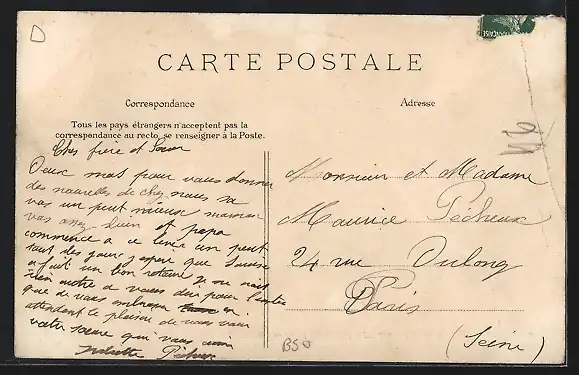 CARTE POSTALE
Correspondance
Adresse
Tous les pays étrangers n'acceptent pas la
correspondance au recto, se renseigner à la Poste.
Cher frère et Soeur
Deux mot pour vous donner
des nouvelles de chez nous sa
vas un peut mieux maman
vas assez bien et papa
commence a ce lever un peut
tout des jours j'espere que
a fait un bon retour je ne vois
rien autre a vous dire pour
que de vous embrasse en
attendent le plaisir de vous voir
votre soeur qui vous aime
Pécheux
Monsieur et Madame
Maurice Pécheux
24 rue Dulong
Paris
(Seine)
D
BS6